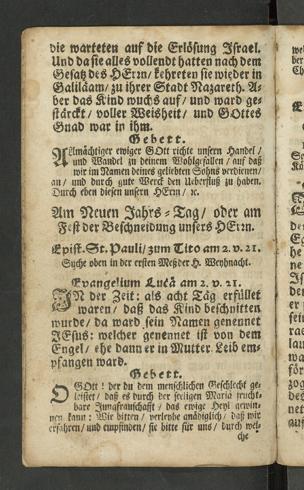 die warteten auf die Erlösung Israel.
Und da sie alles vollendt hatten nach dem
Gesatz des HErrn/ kehreten sie wieder in
Galiläam/ zu ihrer Stadt Nazareth. A-
ber das Kind wuchs auf/ und ward ge-
stärckt/ voller Weißheit/ und GOttes
Gnad war in ihm.
Gebett.
Allmächtiger ewiger GOtt richte unsern Handel/
und Wandel zu deinem Wohlgefallen/ auf daß
wir im Namen deines geliebten Sohns verdienen/
an/ und durch gute Werck den Ueberfluß zu haben.
Durch eben diesen unsern HErrn/ ꝛc.
Am Neuen Jahrs-Tag/ oder am
Fest der Beschneidung unsers HErrn.
Epist. St. Pauli/ zum Tito am 2. v. 21.
Suche oben in der ersten Meß der H. Weyhnacht.
Evangelium Lucä am 2. v. 21.
IN der Zeit: als acht Täg erfüllet
waren/ daß das Kind beschnitten
wurde/ da ward sein Namen genennet
JEsus: welcher genennet ist von dem
Engel/ ehe dann er in Mutter-Leib em-
pfangen ward.
Gebett.
OGOtt! der du dem menschlichen Geschlecht ge-
leistet/ daß es durch der seeligen Mariä frucht-
bare Jungfrauschafft/ das ewige Heyl gewin-
nen kann: Wir bitten/ verleyhe gnädiglich/ daß wir
erfahren/ und empfinden/ sie bitte für uns/ durch wel-
che